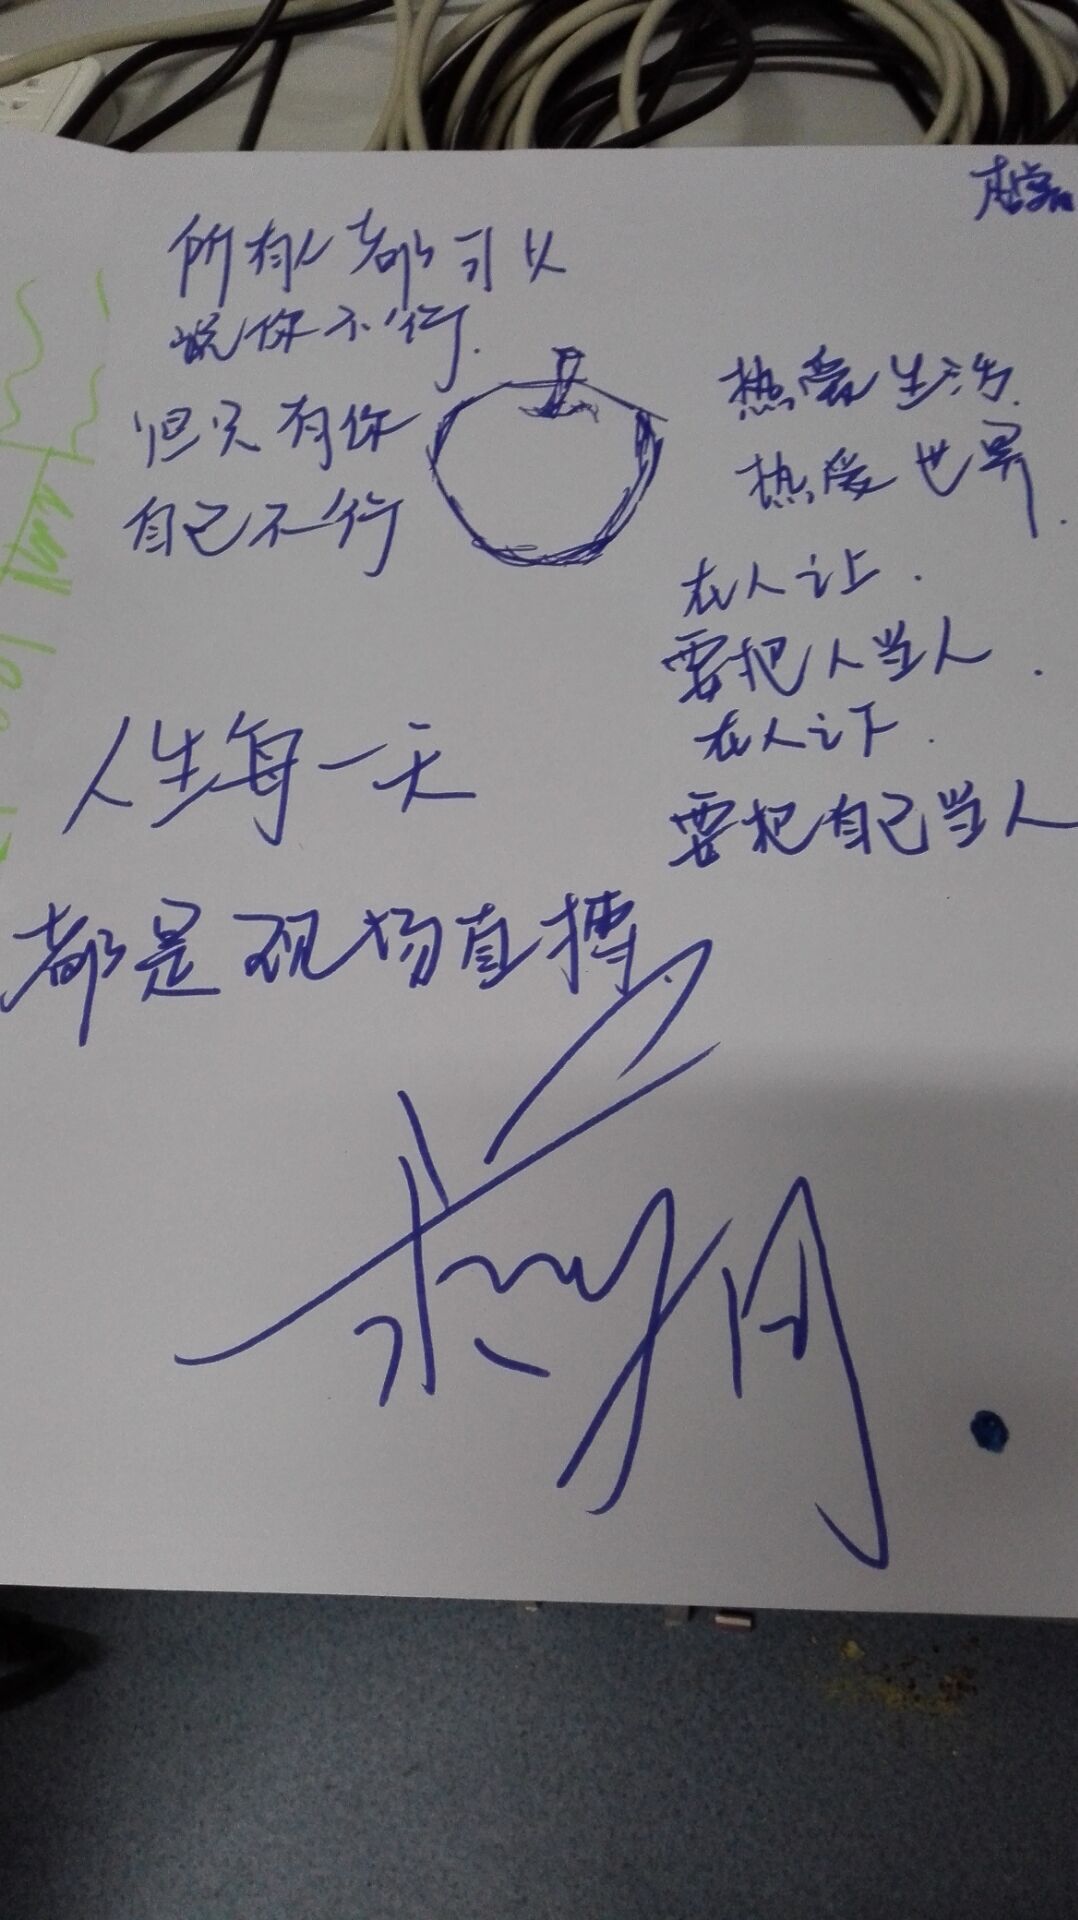 所有人都可以
说你不行.
但只有你
自己不行
热爱生活.
热爱世界.
在人之上.
要把人当人.
在人之下.
要把自己当人
人生每一天
都是现场直播.